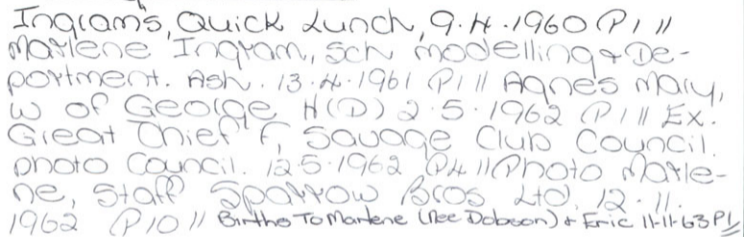 Ingram's, Quick Lunch, 9.4.1960 P1 //
Marlene Ingram, sch modelling & De-
portment. Ash. 13.4.1961 P1 // Agnes Mary,
w of George, H(D) 2.5.1962 P1 // Ex.
Great Chief F, Savage Club Council.
photo Council. 12.5.1962 P4 // Photo Marle-
ne, Staff Sparrow Bros Ltd. 12.11.
1962 P10 // Births To Marlene (Nee Dobson) & Eric 11-11-63 P1